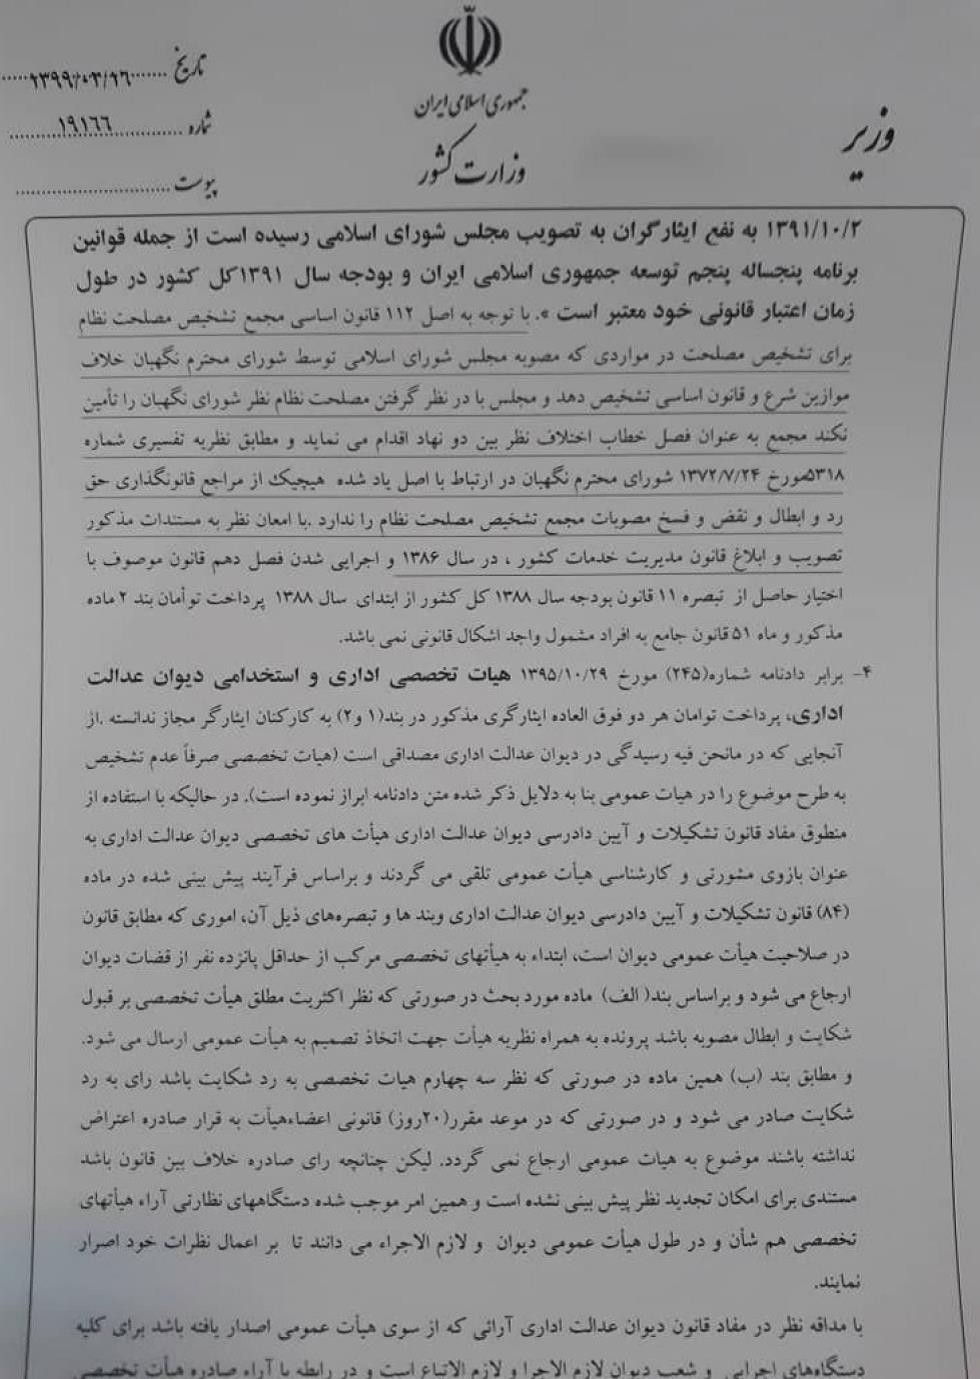 جمهوری اسلامی ایران
وزارت کشور
وزیر
تاریخ ۱۳۹۹/۰۳/۲۶
شماره ۱۹۱۶۶
پیوست
۱۳۹۱/۱۰/۲ به نفع ایثارگران به تصویب مجلس شورای اسلامی رسیده است از جمله قوانین
برنامه پنجساله پنجم توسعه جمهوری اسلامی ایران و بودجه سال ۱۳۹۱کل کشور در طول
زمان اعتبار قانونی خود معتبر است ». با توجه به اصل ۱۱۲ قانون اساسی مجمع تشخیص مصلحت نظام
برای تشخیص مصلحت در مواردی که مصوبه مجلس شورای اسلامی توسط شورای محترم نگهبان خلاف
موازین شرع و قانون اساسی تشخیص دهد و مجلس با در نظر گرفتن مصلحت نظام نظر شورای نگهبان را تأمین
نکند مجمع به عنوان فصل خطاب اختلاف نظر بین دو نهاد اقدام می نماید و مطابق نظریه تفسیری شماره
۵۳۱۸مورخ ۱۳۷۲/۷/۲۴ شورای محترم نگهبان در ارتباط با اصل یاد شده هیچیک از مراجع قانونگذاری حق
رد و ابطال و نقض و فسخ مصوبات مجمع تشخیص مصلحت نظام را ندارد .با امعان نظر به مستندات مذکور
تصویب و ابلاغ قانون مدیریت خدمات کشور ، در سال ۱۳۸۶ و اجرایی شدن فصل دهم قانون موصوف با
اختیار حاصل از تبصره ۱۱ قانون بودجه سال ۱۳۸۸ کل کشور از ابتدای سال ۱۳۸۸ پرداخت توأمان بند ۲ ماده
مذکور و ماه ۵۱ قانون جامع به افراد مشمول واجد اشکال قانونی نمی باشد.
۴- برابر دادنامه شماره(۲۴۵) مورخ ۱۳۹۵/۱۰/۲۹ هیات تخصصی اداری و استخدامی دیوان عدالت
اداری، پرداخت توامان هر دو فوق العاده ایثارگری مذکور در بند(۱ و۲) به کارکنان ایثارگر مجاز ندانسته .از
آنجایی که در مانحن فیه رسیدگی در دیوان عدالت اداری مصداقی است (هیات تخصصی صرفاً عدم تشخیص
به طرح موضوع را در هیات عمومی بنا به دلایل ذکر شده متن دادنامه ابراز نموده است). در حالیکه با استفاده از
منطوق مفاد قانون تشکیلات و آیین دادرسی دیوان عدالت اداری هیأت های تخصصی دیوان عدالت اداری به
عنوان بازوی مشورتی و کارشناسی هیأت عمومی تلقی می گردند و براساس فرآیند پیش بینی شده در ماده
(۸۴) قانون تشکیلات و آیین دادرسی دیوان عدالت اداری وبند ها و تبصره‌های ذیل آن، اموری که مطابق قانون
در صلاحیت هیأت عمومی دیوان است، ابتداء به هیأتهای تخصصی مرکب از حداقل پانزده نفر از قضات دیوان
ارجاع می شود و براساس بند( الف) ماده مورد بحث در صورتی که نظر اکثریت مطلق هیأت تخصصی بر قبول
شکایت و ابطال مصوبه باشد پرونده به همراه نظریه هیأت جهت اتخاذ تصمیم به هیأت عمومی ارسال می شود.
و مطابق بند (ب) همین ماده در صورتی که نظر سه چهارم هیات تخصصی به رد شکایت باشد رای به رد
شکایت صادر می شود و در صورتی که در موعد مقرر(۲۰روز) قانونی اعضاءهیأت به قرار صادره اعتراض
نداشته باشند موضوع به هیات عمومی ارجاع نمی گردد. لیکن چنانچه رای صادره خلاف بین قانون باشد
مستندی برای امکان تجدید نظر پیش بینی نشده است و همین امر موجب شده دستگاههای نظارتی آراء هیأتهای
تخصصی هم شأن و در طول هیأت عمومی دیوان و لازم الاجراء می دانند تا بر اعمال نظرات خود اصرار
نمایند.
با مداقه نظر در مفاد قانون دیوان عدالت اداری آرائی که از سوی هیأت عمومی اصدار یافته باشد برای کلیه
دستگاه‌های اجرایی و شعب دیوان لازم الاجرا و لازم الاتباع است و در رابطه با آراء صادره هیأت تخصصی